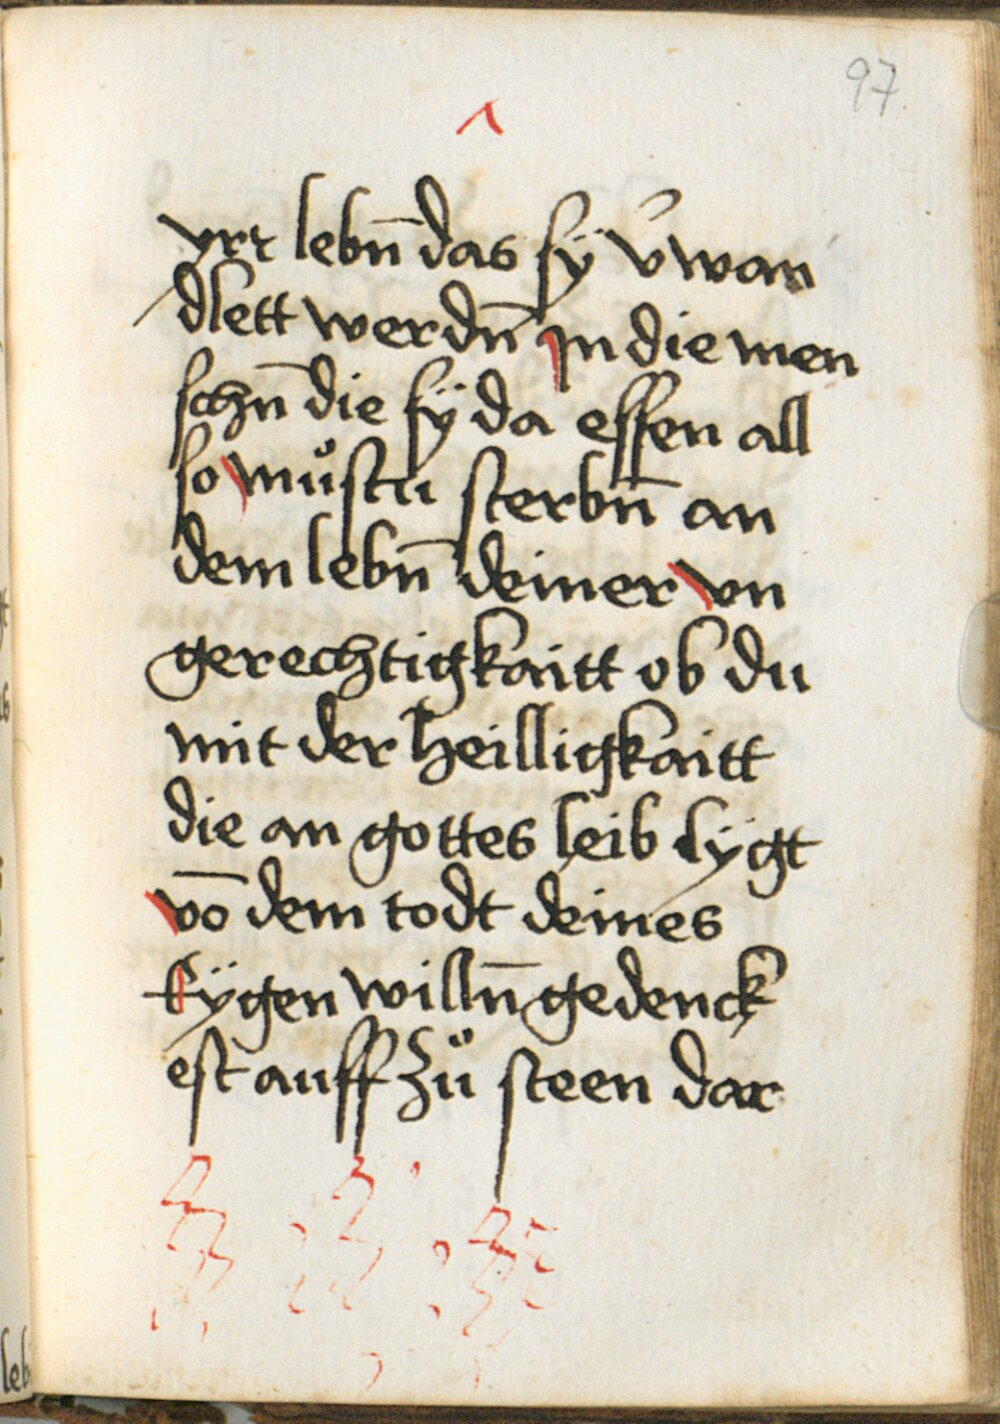 97
yrr lebn̄ das sÿ v̄wan
dlett werdn̄ jn die men
schn̄ die sÿ da essen all
so můstu sterbn̄ an
dem lebn̄ deiner vn
gerechtigkaitt ob du
mit der heilligkaitt
die an gottes leib lÿgt
vō dem todt deines
Eÿgen willn̄ gedenck
est auff zů steen dar
leb